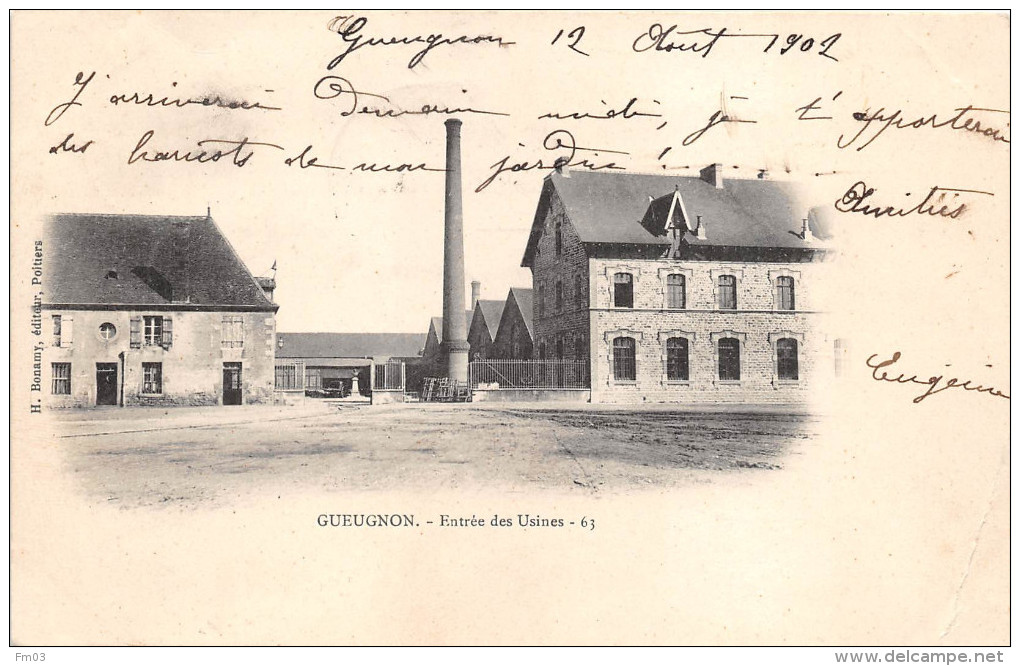 Gueugnon 12 Aout 1902
J'arriverai Demain midi, je t'apporterai
des haricots de mon jardin.
Amitiés
Eugénie
H. Bonamy, éditeur, Poitiers
GUEUGNON. - Entrée des Usines - 63
Fm03
www.delcampe.net